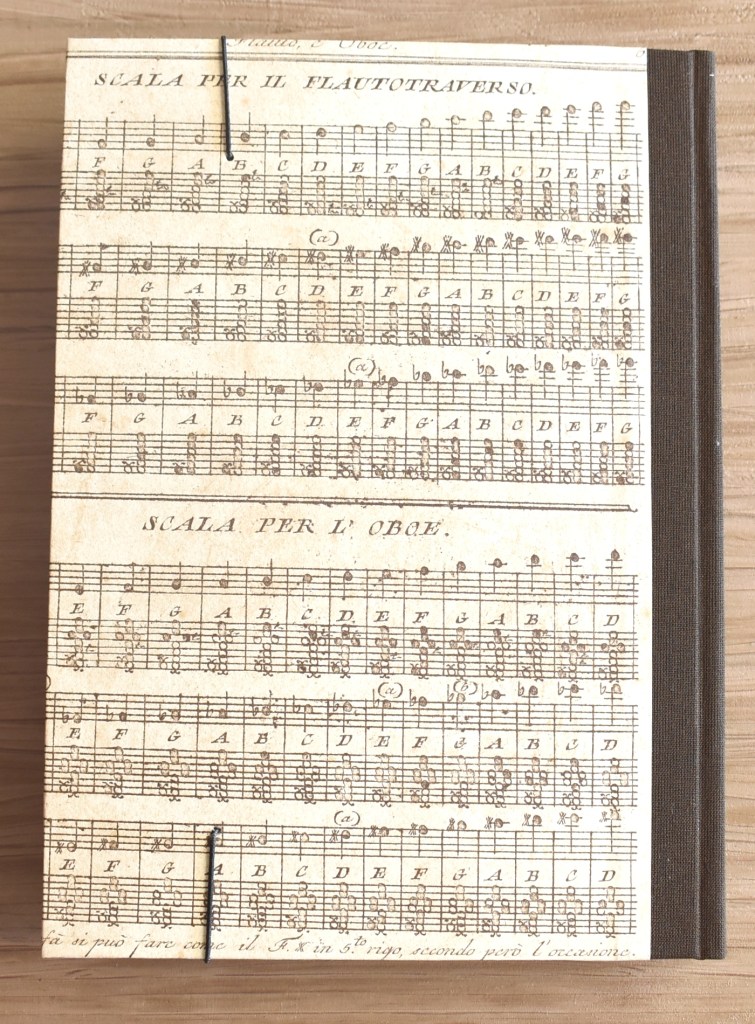 Flauto, e Oboe.
SCALA PER IL FLAUTOTRAVERSO.
F G A B C D E F G A B C D E F G
(a)
F G A B C D E F G A B C D E F G
(a)
F G A B C D E F G A B C D E F G
SCALA PER L' OBOE.
E F G A B C D E F G A B C D
(a) (b)
E F G A B C D E F G A B C D
(a)
E F G A B C D E F G A B C D
fà si può fare come il F. in 5.to rigo, secondo però l'occasione.